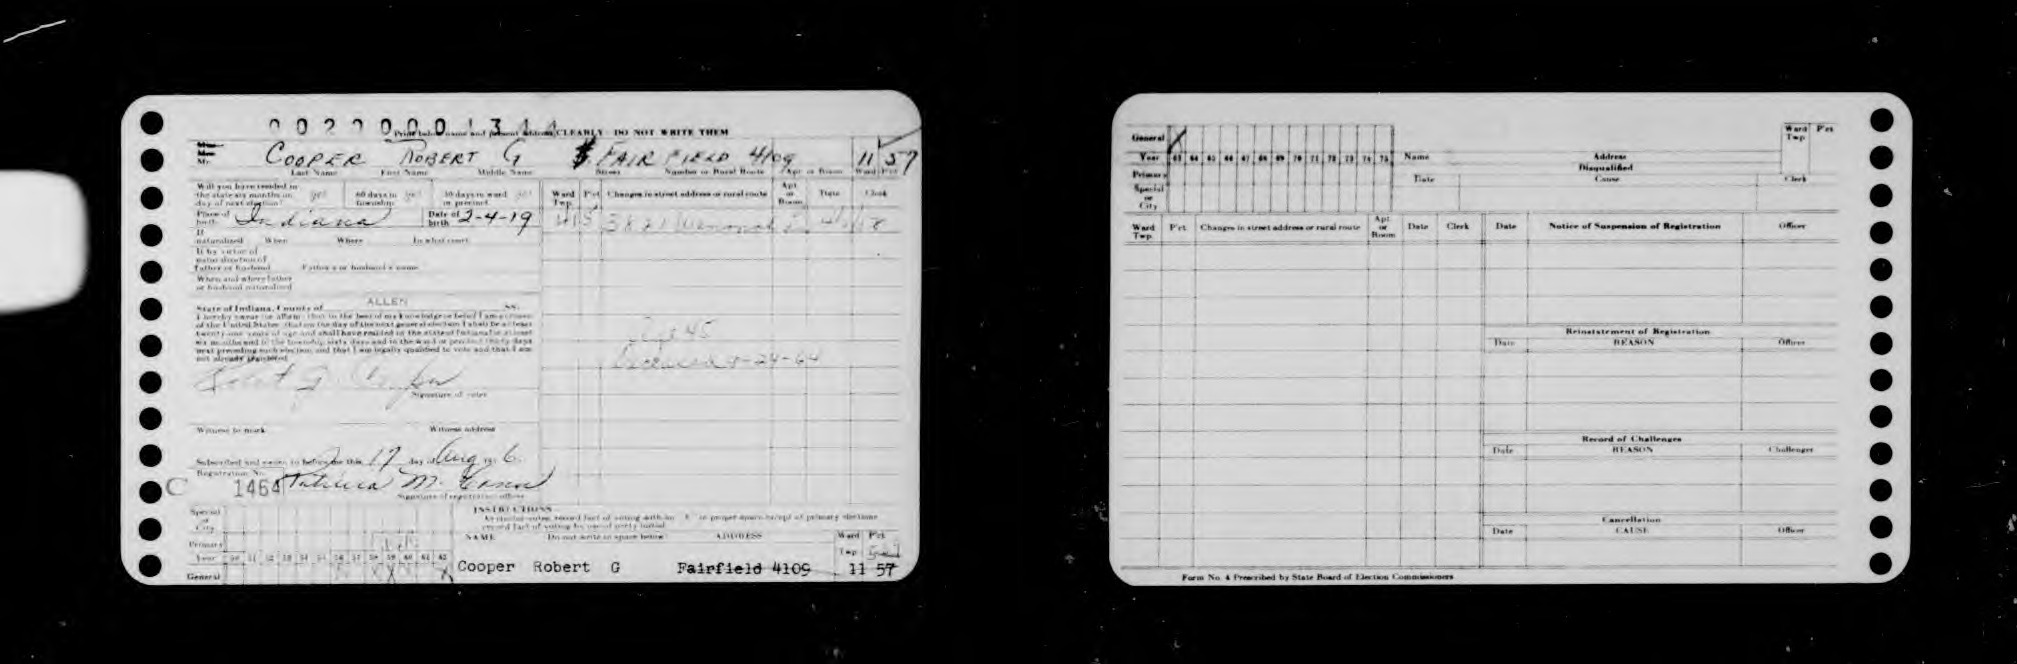 Print below name and present address CLEARLY - DO NOT WRITE THEM
Mr. COOPER ROBERT G S. FAIRFIELD 4109 11 57
Last Name First Name Middle Name Street Number or Rural Route Apt or Room Ward P'ct
Will you have resided in the state six months on day of next election? yes 60 days in township yes 30 days in ward or precinct yes
Ward Twp. P'ct Changes in street address or rural route Apt or Room Date Clerk
Place of birth Indiana Date of birth 2-4-19
If naturalized When Where In what court
If by virtue of naturalization of Father or husband Father's or husband's name
When and where father or husband naturalized
State of Indiana, County of ALLEN SS:
I hereby swear (or affirm) that to the best of my knowledge or belief I am a citizen
of the United States, that on the day of the next general election I shall be at least
twenty-one years of age and shall have resided in the state of Indiana for at least
six months and in the township sixty days and in the ward or precinct thirty days
next preceding such election, and that I am legally qualified to vote and that I am
not already registered.
Age 45
Deceased 8-24-64
Robert G. Cooper
Signature of voter
Witness to mark Witness address
Subscribed and sworn to before me this 17 day of Aug 19
Registration No.
C 1464 Patricia M.
Signature of registration officer
INSTRUCTIONS
Special or City
Primary
Year 50 51 52 53 54 55 56 57 58 59 60 61 62
General
NAME Do not write in space below ADDRESS Ward Twp P'ct
Cooper Robert G Fairfield 4109 11 57
General
Year 63 64 65 66 67 68 69 70 71 72 73 74 75
Primary
Special or City
Name Address Ward Twp P'ct
Disqualified
Date Cause Clerk
Ward Twp. P'ct Changes in street address or rural route Apt or Room Date Clerk Date Notice of Suspension of Registration Officer
Reinstatement of Registration
Date REASON Officer
Record of Challenges
Date REASON Challenger
Cancellation
Date CAUSE Officer
Form No. 4 Prescribed by State Board of Election Commissioners